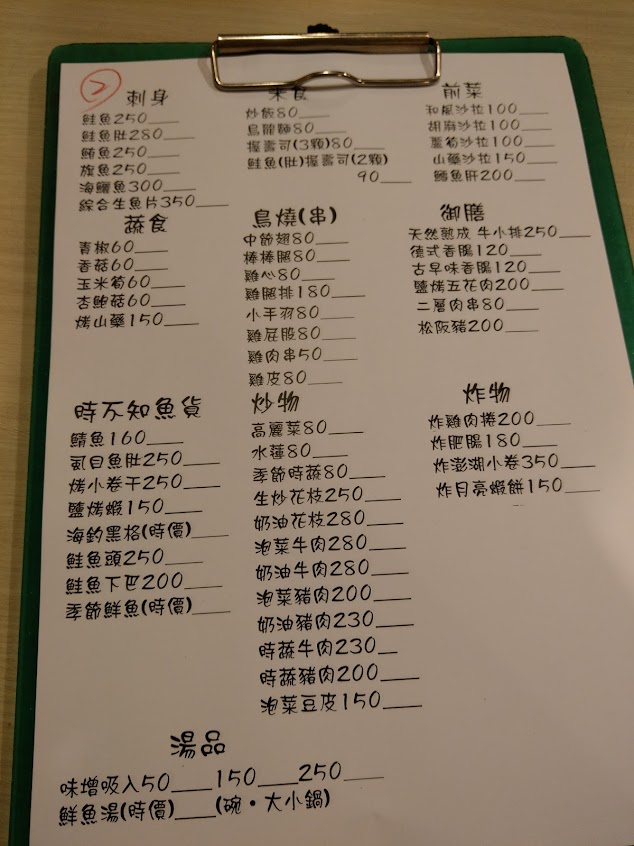 2
刺身
鮭魚250
鮭魚肚280
鮪魚250
旗魚250
海鱺魚300
綜合生魚片350
米食
炒飯80
烏龍麵80
握壽司(3顆)80
鮭魚(肚)握壽司(2顆)
90
前菜
和風沙拉100
胡麻沙拉100
蘆筍沙拉100
山藥沙拉150
鱈魚肝200
蔬食
青椒60
香菇60
玉米筍60
杏鮑菇60
烤山藥150
鳥燒(串)
中節翅80
棒棒腿80
雞心80
雞腿排180
小手羽80
雞屁股80
雞肉串50
雞皮80
御膳
天然熟成 牛小排250
德式香腸120
古早味香腸120
鹽烤五花肉200
二層肉串80
松阪豬200
時不知魚貨
鯖魚160
虱目魚肚250
烤小卷干250
鹽烤蝦150
海釣黑格(時價)
鮭魚頭250
鮭魚下巴200
季節鮮魚(時價)
炒物
高麗菜80
水蓮80
季節時蔬80
生炒花枝250
奶油花枝280
泡菜牛肉280
奶油牛肉280
泡菜豬肉200
奶油豬肉230
時蔬牛肉230
時蔬豬肉200
泡菜豆皮150
炸物
炸雞肉捲200
炸肥腸180
炸澎湖小卷350
炸月亮蝦餅150
湯品
味增吸入50____150____250____
鮮魚湯(時價)____(碗・大小鍋)